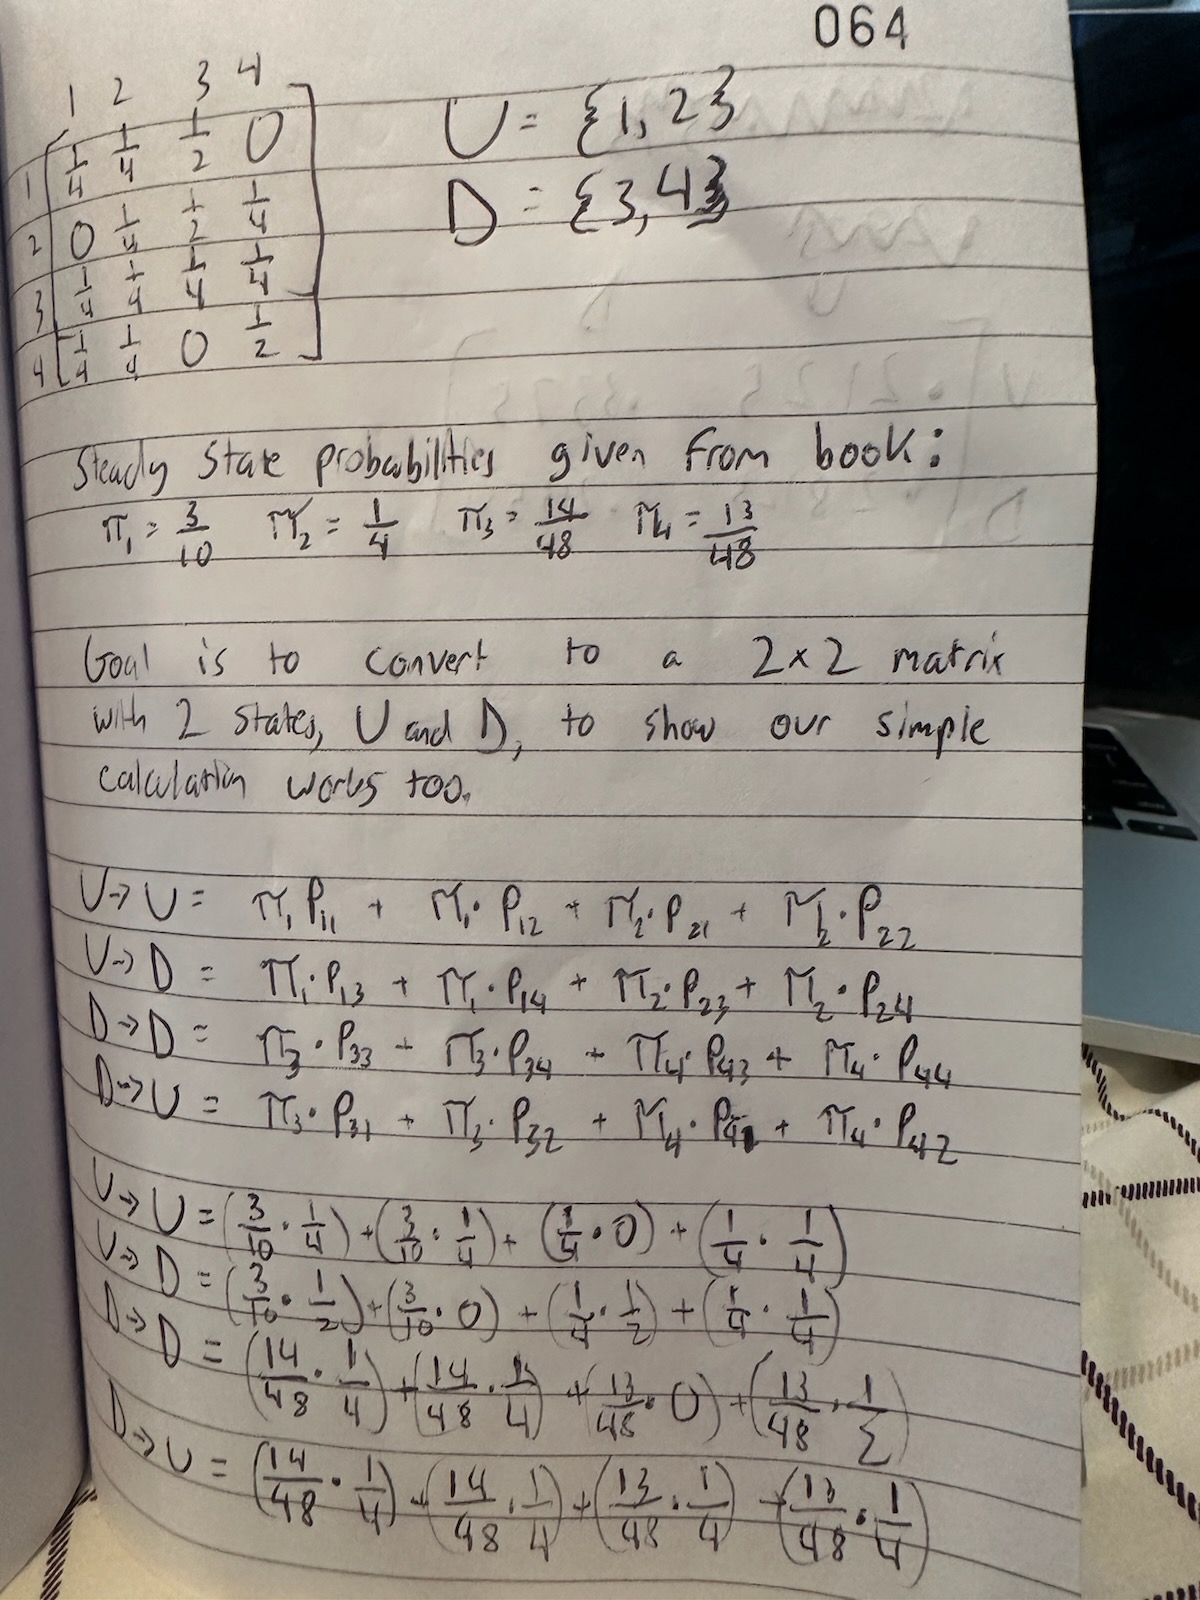 064
1 2 3 4
1 1/4 1/4 1/2 0
2 0 1/4 1/2 1/4
3 1/4 1/4 1/4 1/4
4 1/4 1/4 0 1/2
U = {1,2}
D = {3,4}
Steady State probabilities given from book:
π₁ = 3/10 π₂ = 1/4 π₃ = 14/48 π₄ = 13/48
Goal is to convert to a 2x2 matrix
with 2 states, U and D, to show our simple
calculation works too.
U→U = π₁P₁₁ + π₁·P₁₂ + π₂·P₂₁ + π₂·P₂₂
U→D = π₁·P₁₃ + π₁·P₁₄ + π₂·P₂₃ + π₂·P₂₄
D→D = π₃·P₃₃ + π₃·P₃₄ + π₄·P₄₃ + π₄·P₄₄
D→U = π₃·P₃₁ + π₃·P₃₂ + π₄·P₄₁ + π₄·P₄₂
U→U = (3/10 · 1/4) + (3/10 · 1/4) + (1/4 · 0) + (1/4 · 1/4)
U→D = (3/10 · 1/2) + (3/10 · 0) + (1/4 · 1/2) + (1/4 · 1/4)
D→D = (14/48 · 1/4) + (14/48 · 1/4) + (13/48 · 0) + (13/48 · 1/2)
D→U = (14/48 · 1/4) + (14/48 · 1/4) + (13/48 · 1/4) + (13/48 · 1/4)